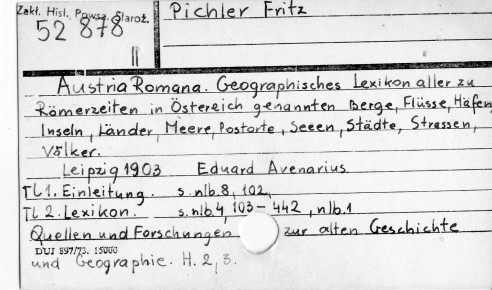 Zakł. Hist. Powsz. Staroż.
52 878
II
Pichler Fritz
Austria Romana. Geographisches Lexikon aller zu
Römerzeiten in Östereich genannten Berge, Flüsse, Häfen,
Inseln, Länder, Meere, Postorte, Seeen, Städte, Strassen,
Völker.
Leipzig 1903 Eduard Avenarius.
Tl 1. Einleitung. s. nlb. 8, 102,
Tl 2. Lexikon. s. nlb. 4, 103-442, nlb. 1
Quellen und Forschungen zur alten Geschichte
DUJ 897/73. 15000
und Geographie. H. 2, 3.